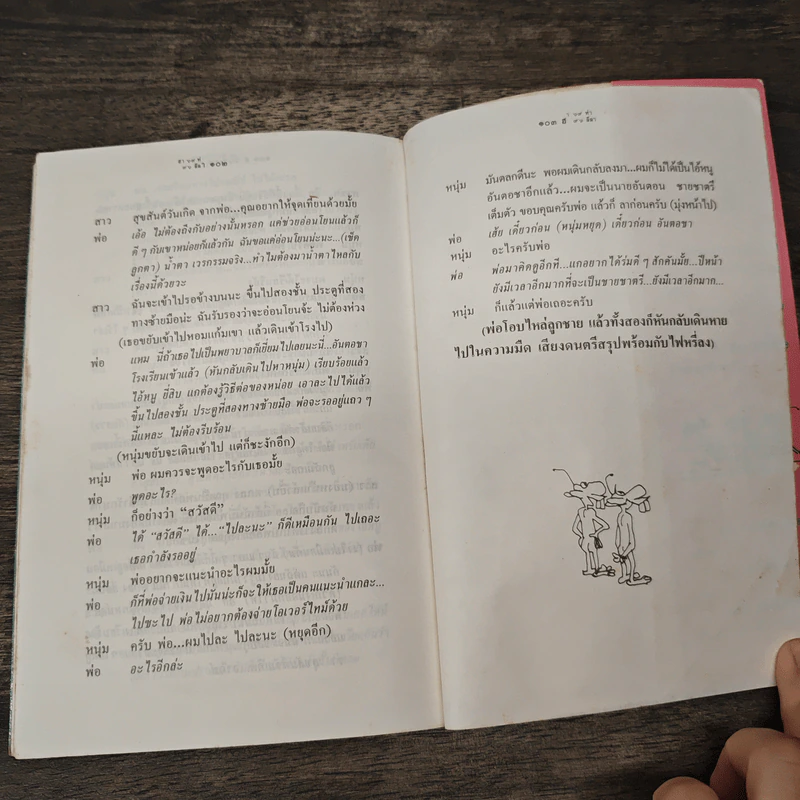 ๑๐๒
สาว สุขสันต์วันเกิด จากพ่อ...คุณอยากให้จุดเทียนด้วยมั้ย
พ่อ เอ้อ ไม่ต้องถึงกับอย่างนั้นหรอก แค่ช่วยอ่อนโยนแล้วก็
ดี ๆ กับเขาหน่อยก็แล้วกัน ฉันขอแค่อ่อนโยนน่ะนะ...(เช็ด
ลูกตา) น้ำตา เวรกรรมจริง...ทำไมต้องมาน้ำตาไหลกับ
เรื่องนี้ด้วยวะ
สาว ฉันจะเข้าไปรอข้างบนนะ ขึ้นไปสองชั้น ประตูที่สอง
ทางซ้ายมือน่ะ ฉันรับรองว่าจะอ่อนโยนจ้ะ ไม่ต้องห่วง
(เธอขยับเข้าไปหอมแก้มเขา แล้วเดินเข้าโรงไป)
พ่อ แหม นี่ถ้าเธอไปเป็นพยาบาลก็เยี่ยมไปเลยนะนี่...อันตอขา
โรงเรียนเข้าแล้ว (หันกลับเดินไปหาหนุ่ม) เรียบร้อยแล้ว
ไอ้หนู ยี่สิบ แกต้องรู้วิธีต่อของหน่อย เอาละไปได้แล้ว
ขึ้นไปสองชั้น ประตูที่สองทางซ้ายมือ พ่อจะรออยู่แถว ๆ
นี้แหละ ไม่ต้องรีบร้อน
(หนุ่มขยับจะเดินเข้าไป แต่ก็ชะงักอีก)
หนุ่ม พ่อ ผมควรจะพูดอะไรกับเธอมั้ย
พ่อ พูดอะไร?
หนุ่ม ก็อย่างว่า “สวัสดี”
พ่อ ได้ “สวัสดี” ได้...“ไปละนะ” ก็ดีเหมือนกัน ไปเถอะ
เธอกำลังรออยู่
หนุ่ม พ่ออยากจะแนะนำอะไรผมมั้ย
พ่อ ก็ที่พ่อจ่ายเงินไปนั่นน่ะก็จะให้เธอเป็นคนแนะนำแกละ...
ไปซะไป พ่อไม่อยากต้องจ่ายโอเวอร์ไทม์ด้วย
หนุ่ม ครับ พ่อ...ผมไปละ ไปละนะ (หยุดอีก)
พ่อ อะไรอีกล่ะ
๑๐๓
หนุ่ม มันตลกดีนะ พอผมเดินกลับลงมา...ผมก็ไม่ได้เป็นไอ้หนู
อันตอชาอีกแล้ว...ผมจะเป็นนายอันตอน ชายชาตรี
เต็มตัว ขอบคุณครับพ่อ แล้วก็ ลาก่อนครับ (มุ่งหน้าไป)
พ่อ เฮ้ย เดี๋ยวก่อน (หนุ่มหยุด) เดี๋ยวก่อน อันตอชา
หนุ่ม อะไรครับพ่อ
พ่อ พ่อมาคิดดูอีกที...แกอยากได้ร่มดี ๆ สักคันมั้ย...ปีหน้า
ยังมีเวลาอีกมากที่จะเป็นชายชาตรี...ยังมีเวลาอีกมาก...
หนุ่ม ก็แล้วแต่พ่อเถอะครับ
(พ่อโอบไหล่ลูกชาย แล้วทั้งสองก็หันกลับเดินหาย
ไปในความมืด เสียงดนตรีสรุปพร้อมกับไฟหรี่ลง)